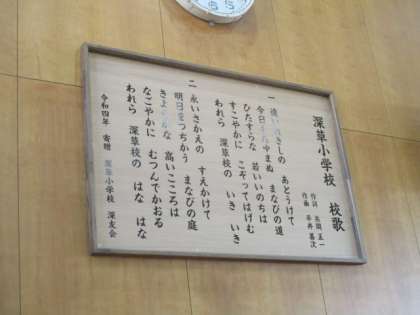 深草小学校 校歌
作詞
作曲
一
きしの あとうけて
今日 やまぬ まなびの道
ひたすらな 若いいのちは
すこやかに こぞってはげむ
われら 深草校の いき いき
二
永いさかえの すえかけて
明日 つちかう まなびの庭
きよ な 高いこころは
なごやかに むつんでかおる
われら 深草校の はな はな
令和四年 寄贈 深草小学校 深友会